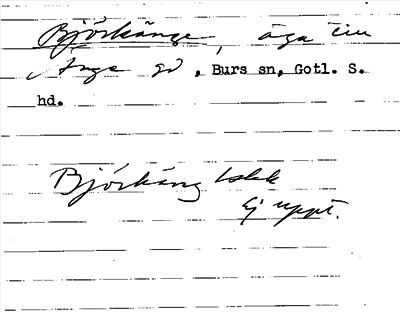 Björkänge, äga till
Änge gd, Burs sn, Gotl. S.
hd.
Björkäng
Ej uppt.